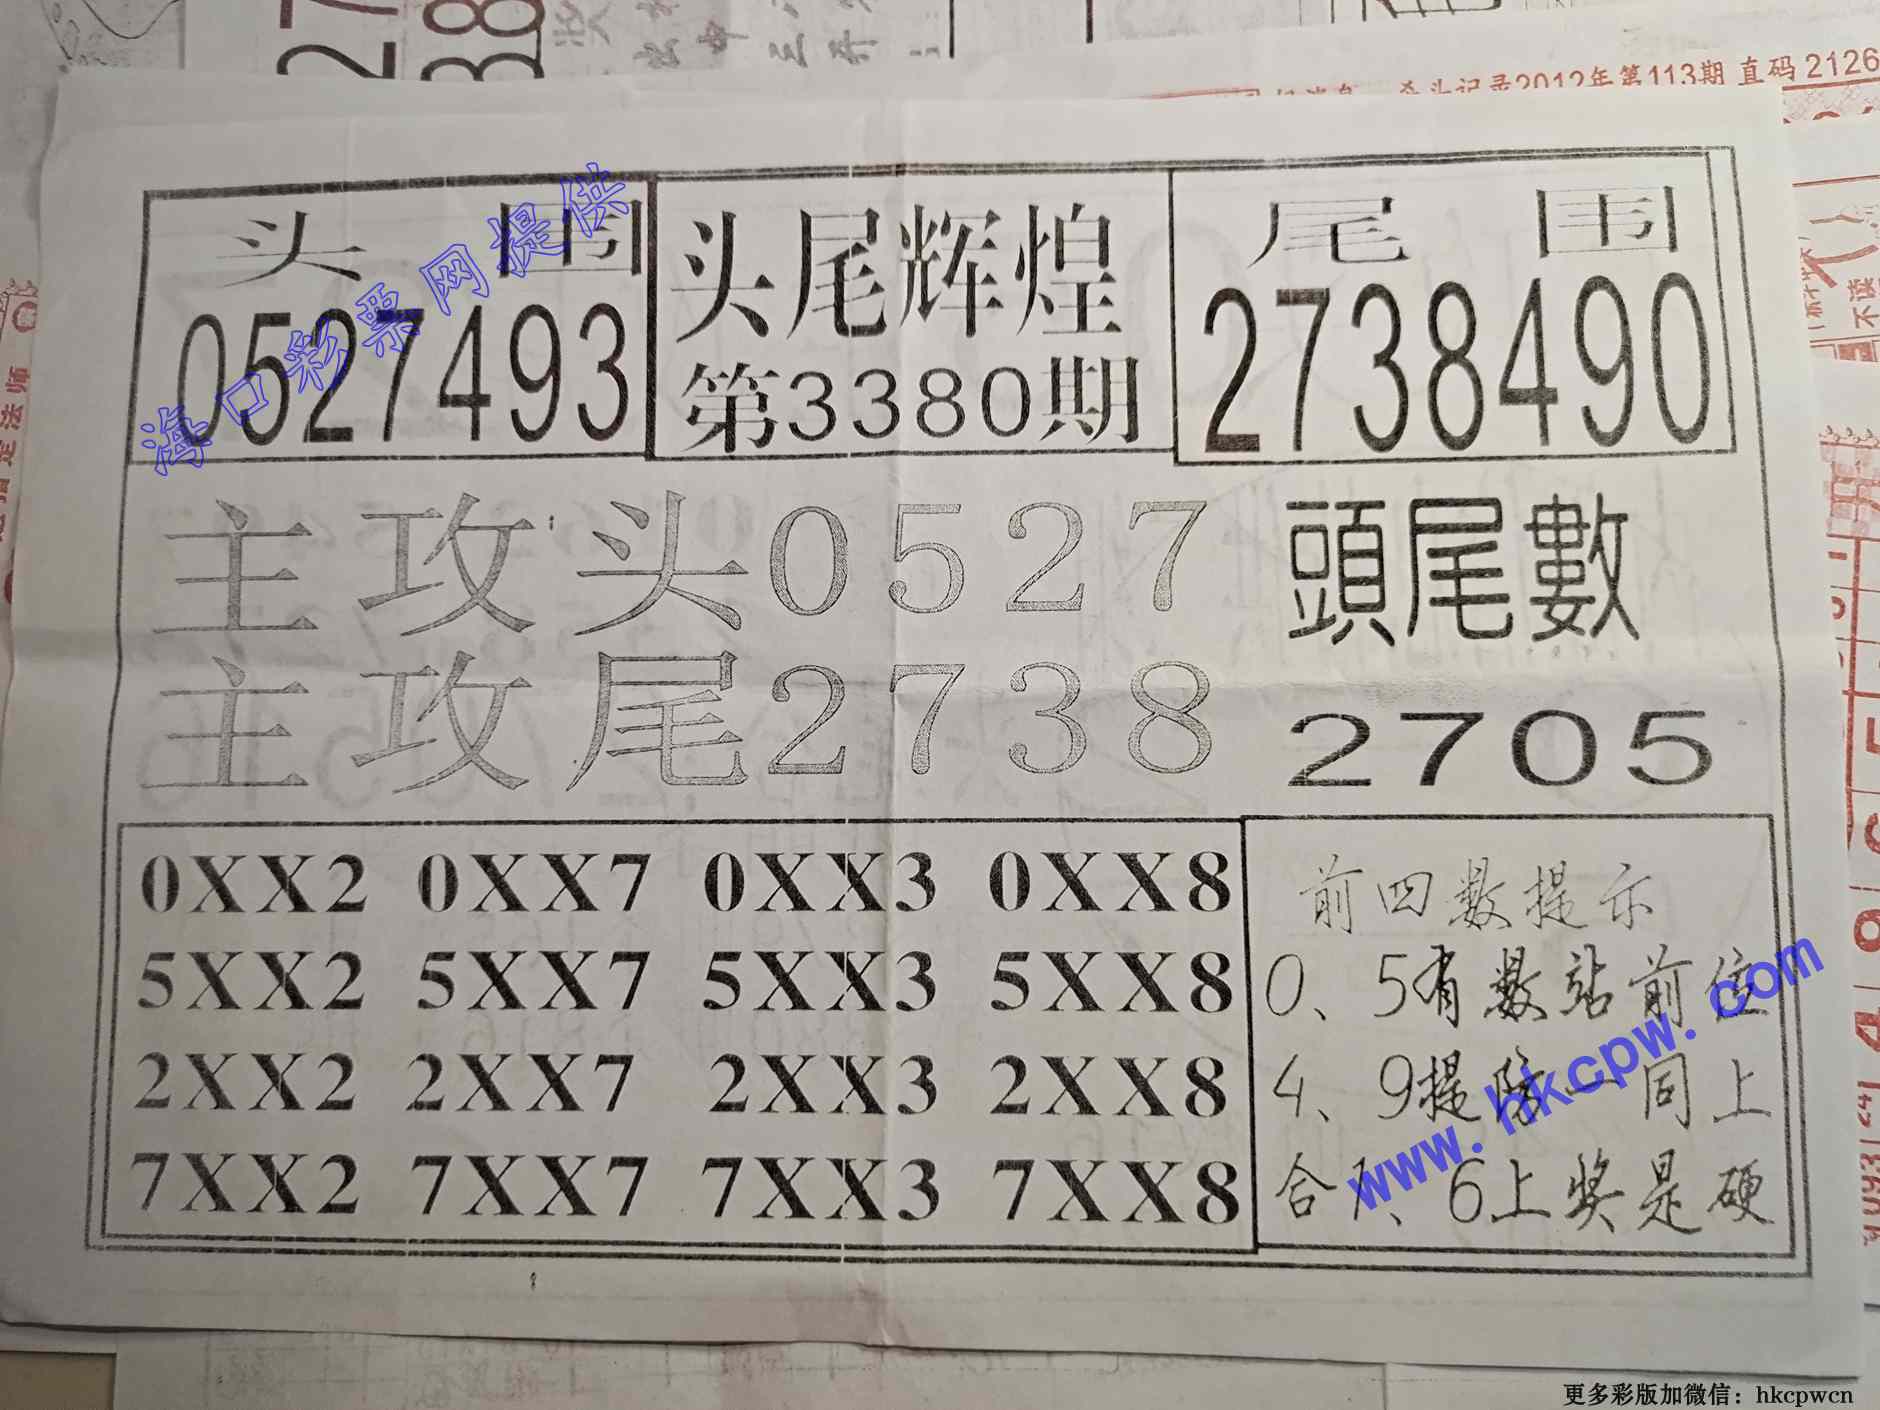 杀头记录2012年第113期 直码 2126
头围
0527493
头尾辉煌
第3380期
尾围
2738490
海口彩票网提供
主攻头0527
主攻尾2738
頭尾數
2705
0XX2 0XX7 0XX3 0XX8
5XX2 5XX7 5XX3 5XX8
2XX2 2XX7 2XX3 2XX8
7XX2 7XX7 7XX3 7XX8
前四数提示
0、5有数站前位
4、9提防一同上
合1、6上奖是硬
www.hkcpw.com
不读
指定法师
更多彩版加微信：hkcpwcn